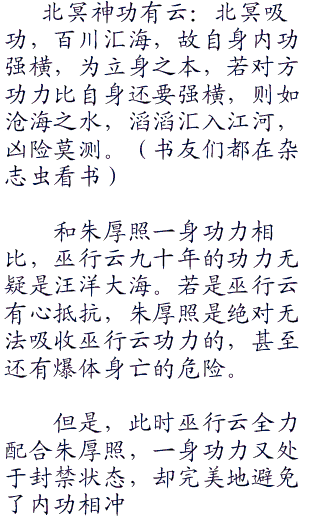 北冥神功有云：北冥吸
功，百川汇海，故自身内功
强横，为立身之本，若对方
功力比自身还要强横，则如
沧海之水，滔滔汇入江河，
凶险莫测。（书友们都在杂
志虫看书）
和朱厚照一身功力相
比，巫行云九十年的功力无
疑是汪洋大海。若是巫行云
有心抵抗，朱厚照是绝对无
法吸收巫行云功力的，甚至
还有爆体身亡的危险。
但是，此时巫行云全力
配合朱厚照，一身功力又处
于封禁状态，却完美地避免
了内功相冲